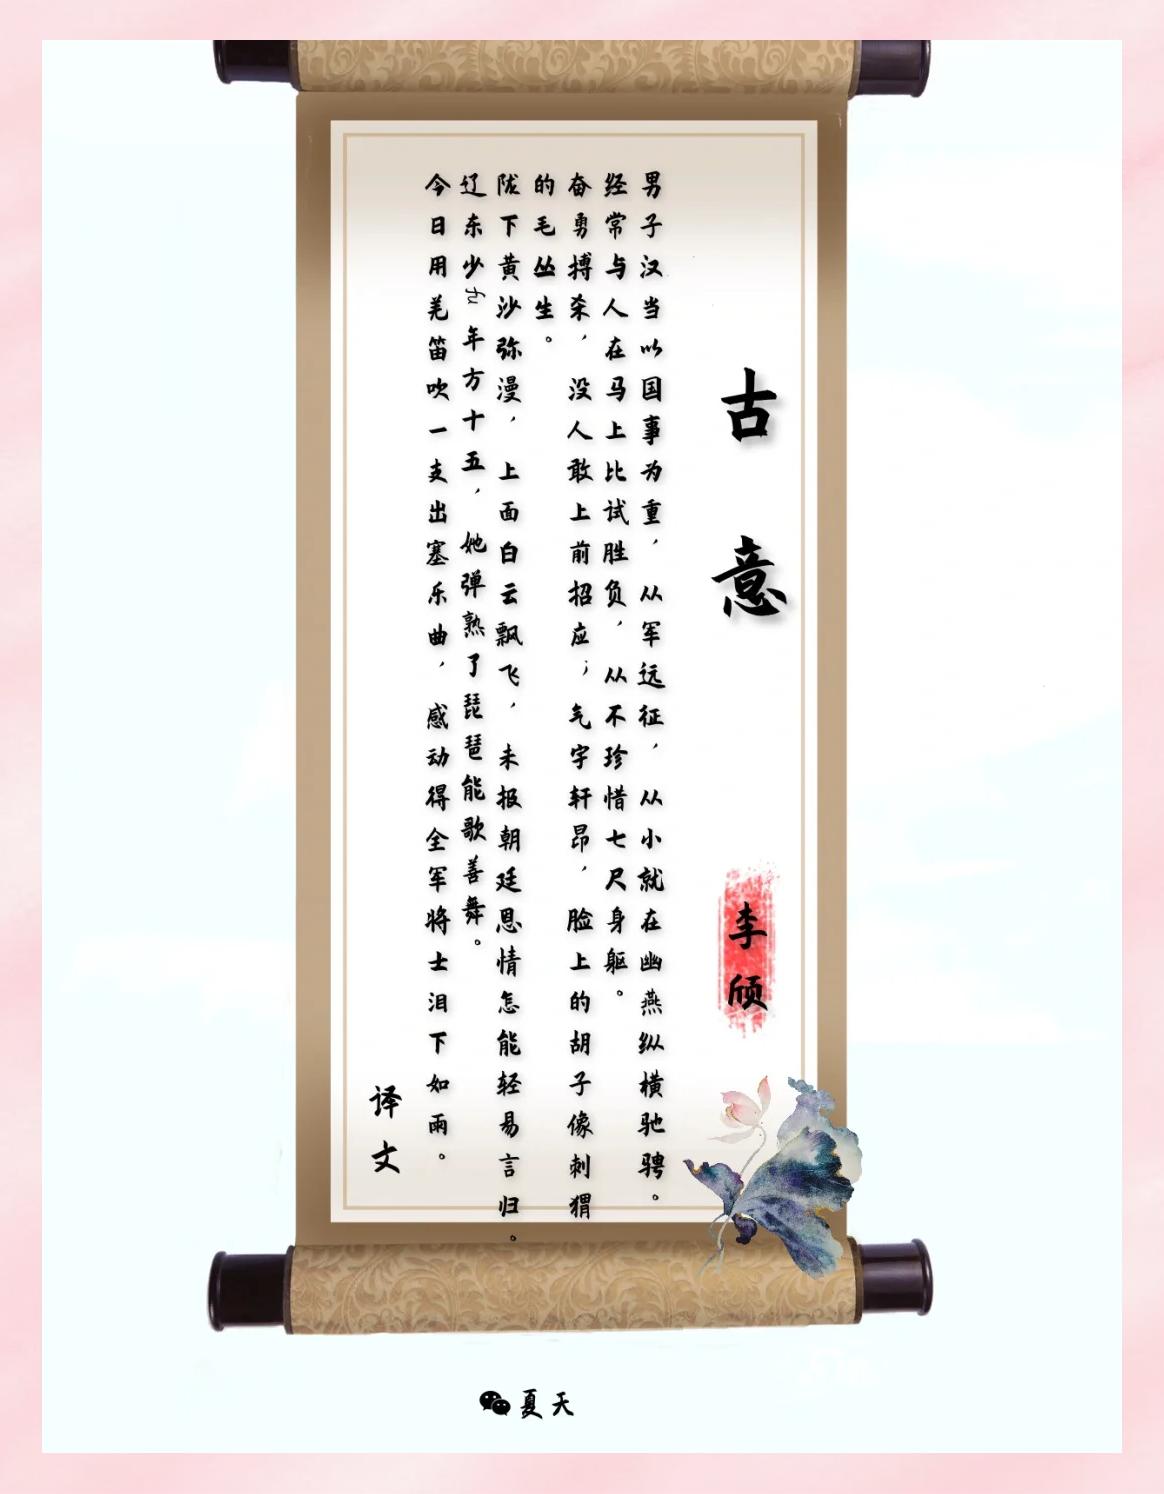 古意
李颀
男子汉当以国事为重，从军远征，从小就在幽燕纵横驰骋。
经常与人在马上比试胜负，从不珍惜七尺身躯。
奋勇搏杀，没人敢上前招应；气宇轩昂，脸上的胡子像刺猬
的毛丛生。
陇下黄沙弥漫，上面白云飘飞，未报朝廷恩情怎能轻易言归。
辽东少年方十五，她弹熟了琵琶能歌善舞。
今日用羌笛吹一支出塞乐曲，感动得全军将士泪下如雨。
译文
夏天